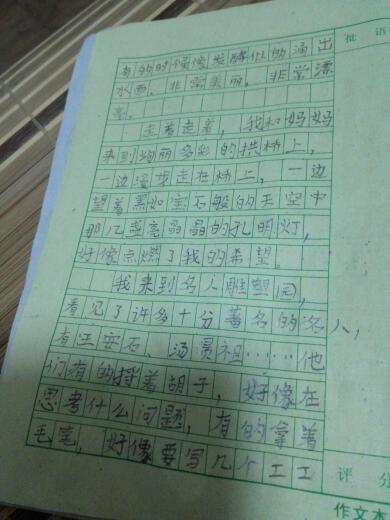 有的时候像发酵似的涌出
水面，非常美丽，非常漂
亮。
走着走着，我和妈妈
来到绚丽多彩的拱桥上，
一边漫步走在桥上，一边
望着黑如宝石般的天空中
那几盏亮晶晶的孔明灯，
好像点燃了我的希望。
我来到名人雕塑园，
看见了许多十分著名的名人，
有王安石、汤显祖……他
们有的捋着胡子，好像在
思考什么问题，有的拿着
毛笔，好像要写几个工工
批语
评分
作文本